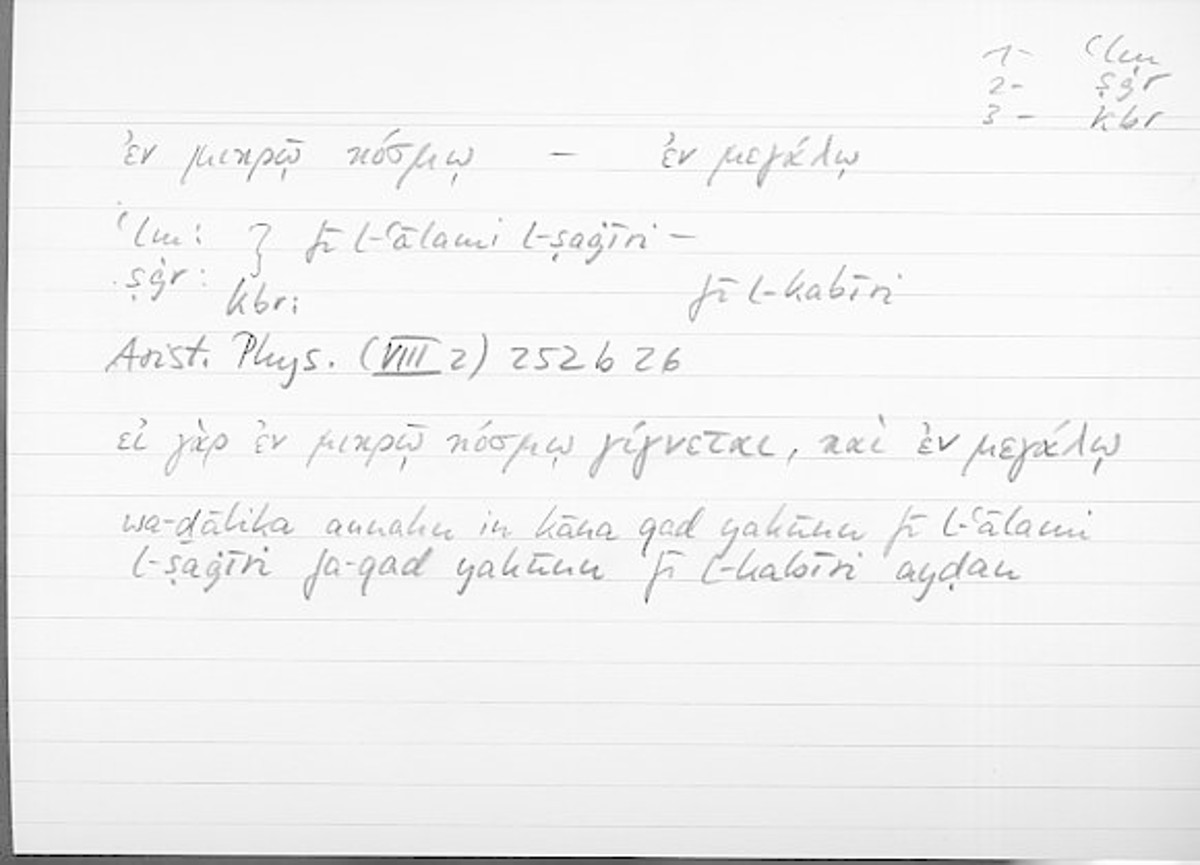 1- ʿlm
2- ṣġr
3- kbr
ἐν μικρῷ κόσμῳ – ἐν μεγάλῳ
ʿlm: } fī l-ʿālami l-ṣaġīri –
ṣġr:
kbr: fī l-kabīri
Arist. Phys. (VIII 2) 252 b 26
εἰ γὰρ ἐν μικρῷ κόσμῳ γίγνεται, καὶ ἐν μεγάλῳ
wa-ḏālika annahu in kāna qad yakūnu fī l-ʿālami
l-ṣaġīri fa-qad yakūnu fī l-kabīri ayḍan